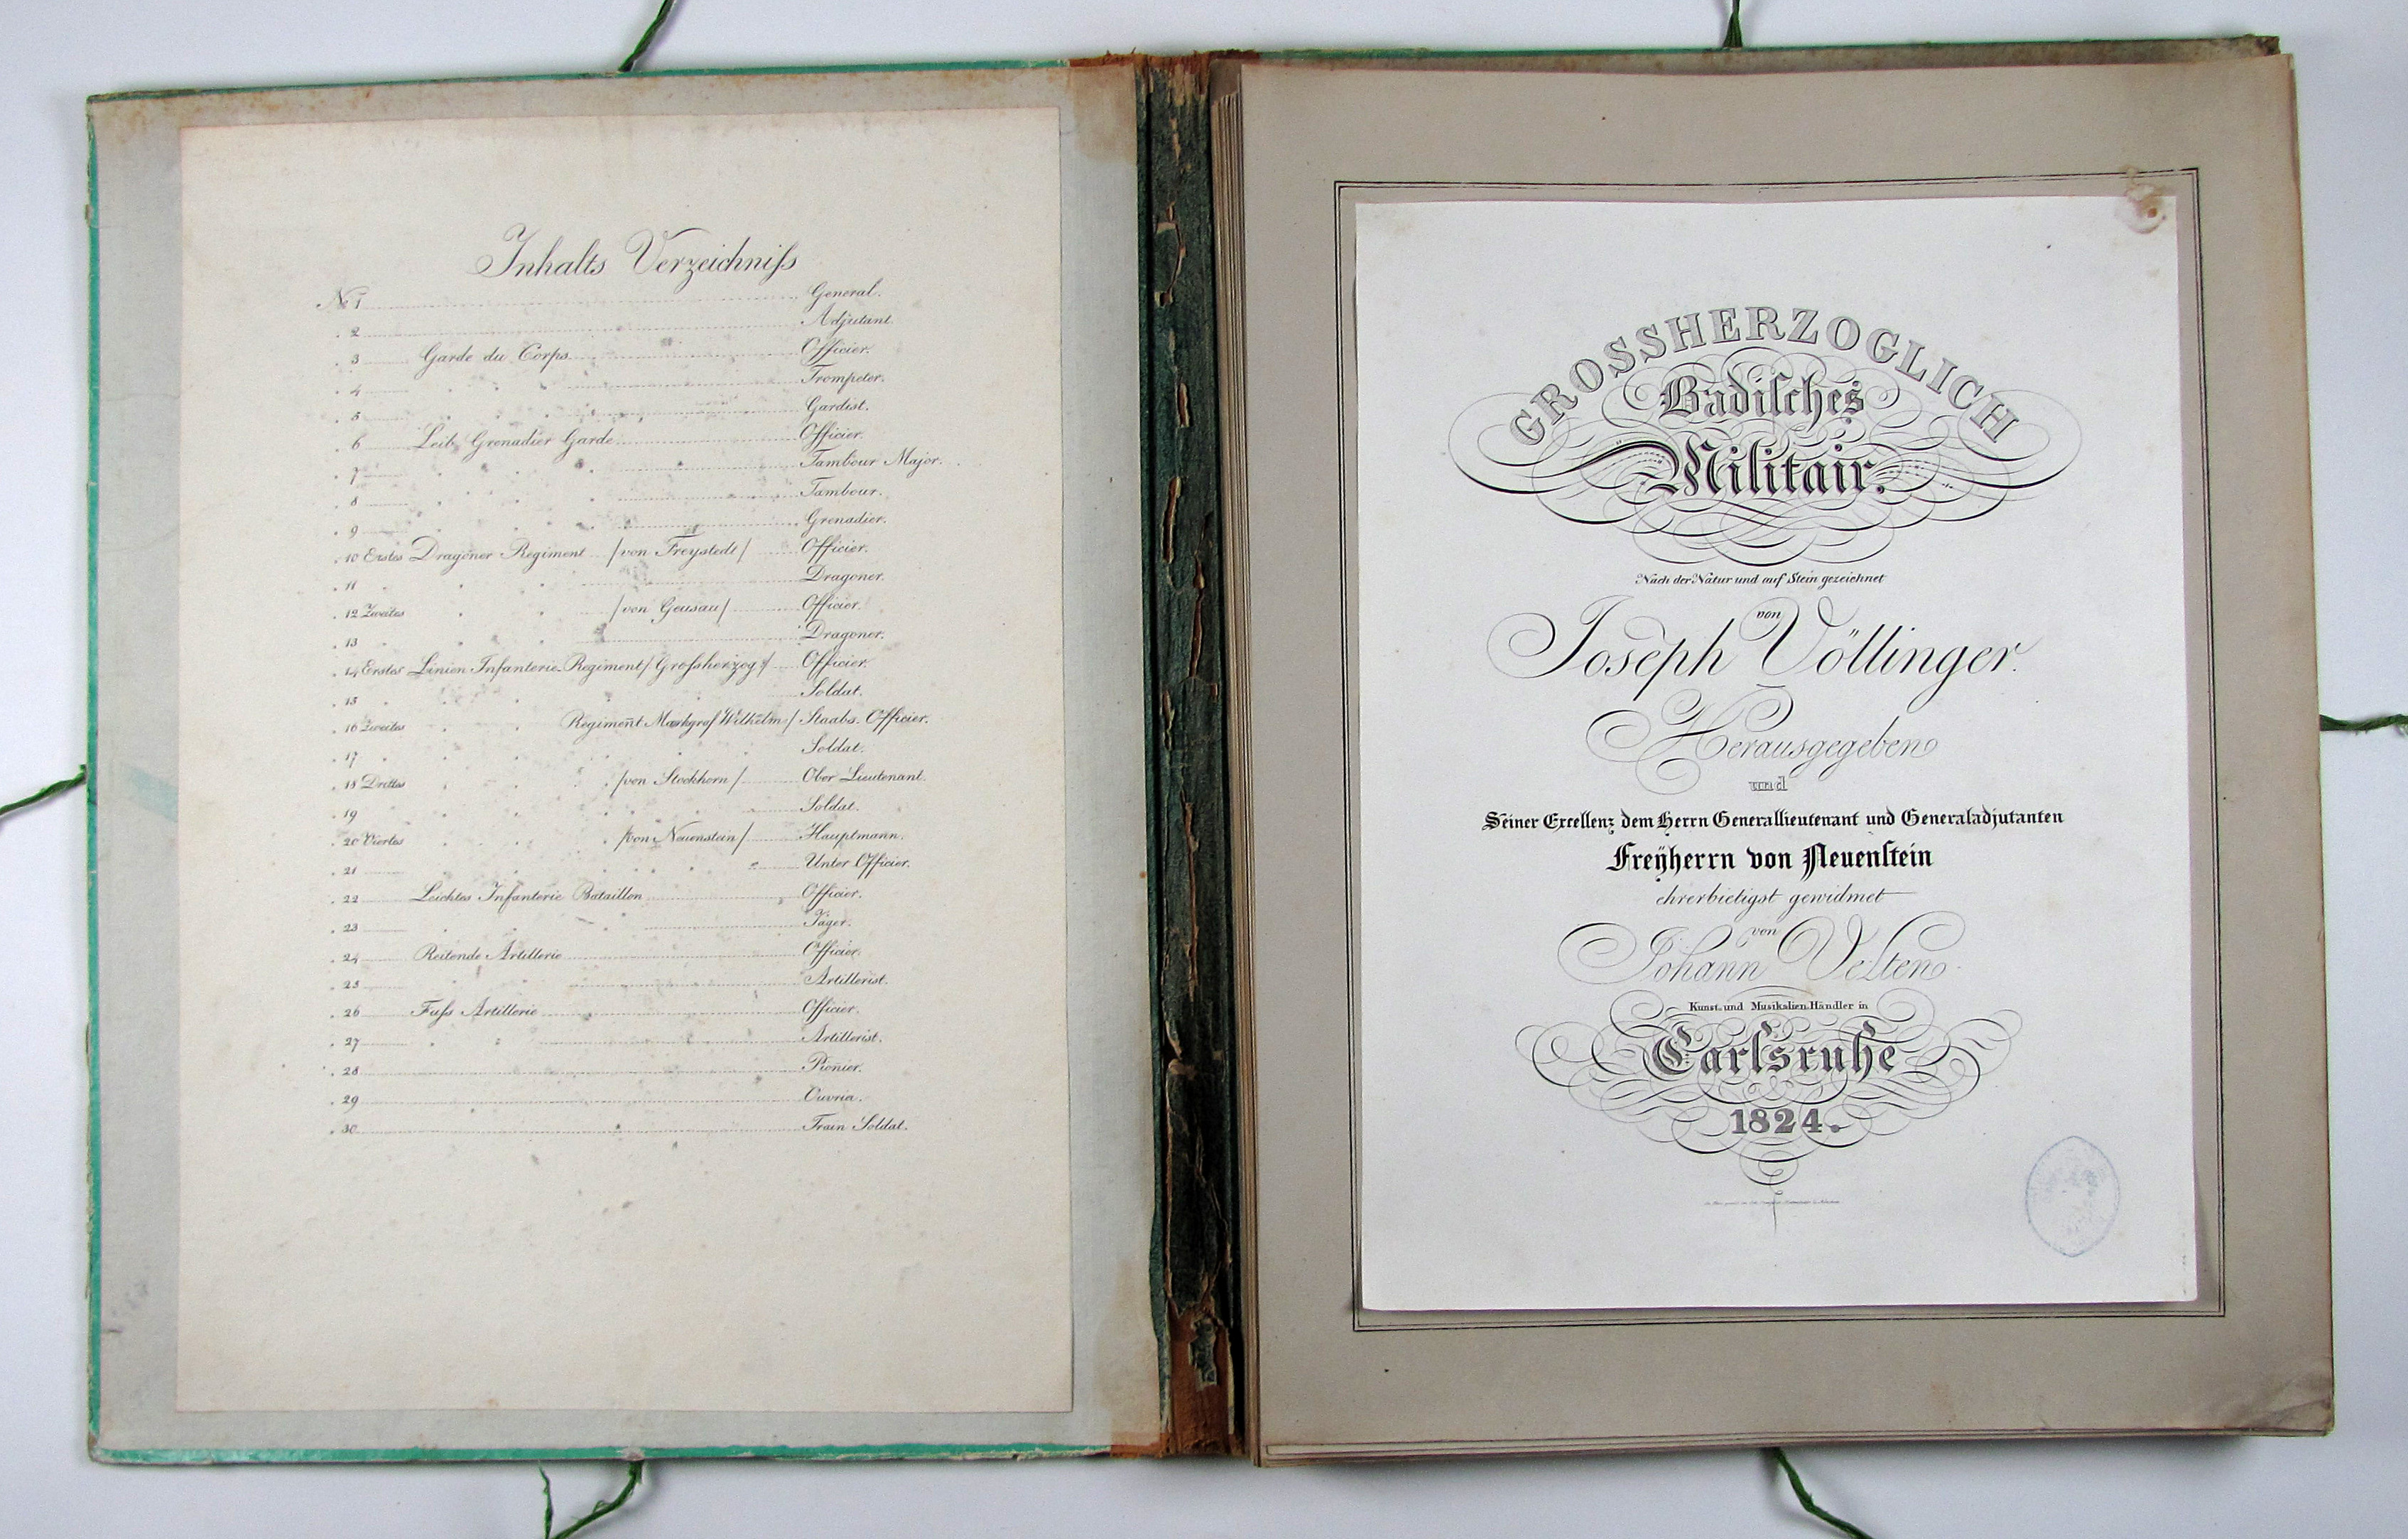 Inhalts Verzeichniſs
No 1 General.
2 Adjutant.
3 Garde du Corps Officier.
4 Trompeter.
5 Gardist.
6 Leib Grenadier Garde Officier.
7 Tambour Major.
8 Tambour.
9 Grenadier.
10 Erstes Dragoner Regiment /von Freystedt/ Officier.
11 Dragoner.
12 Zweites /von Geusau/ Officier.
13 Dragoner.
14 Erstes Linien Infanterie Regiment / Groſsherzog / Officier.
15 Soldat.
16 Zweites Regiment Markgraf Wilhelm / Staabs Officier.
17 Soldat.
18 Drittes /von Stockhorn / Ober Lieutenant.
19 Soldat.
20 Viertes /von Neuenstein / Hauptmann.
21 Unter Officier.
22 Leichtes Infanterie Bataillon Officier.
23 Jäger.
24 Reitende Artillerie Officier.
25 Artillerist.
26 Fuſs Artillerie Officier.
27 Artillerist.
28 Pionier.
29 Ouvria.
30 Train Soldat.
GROSSHERZOGLICH
Badiſches
Militair.
Nach der Natur und auf Stein gezeichnet
von
Joseph Völlinger.
Herausgegeben
und
Seiner Excellenz dem Herrn Generallieutenant und Generaladjutanten
Freÿherrn von Neuenſtein
ehrerbietigst gewidmet
von
Johann Velten
Kunst und Musikalien Händler in
Carlsruhe
1824.